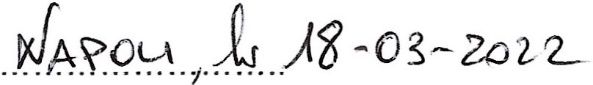 NAPOLI, lì 18-03-2022